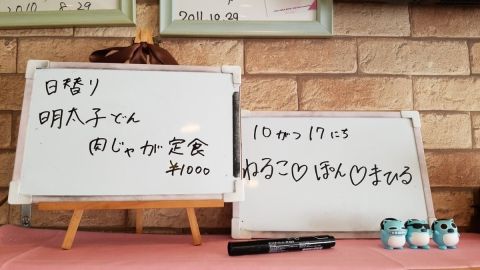 2010 8.29
2011.10.29
日替り
明太子でん
肉じゃが定食
¥1000
10がつ17にち
ねるこ♡ぽん♡まひる